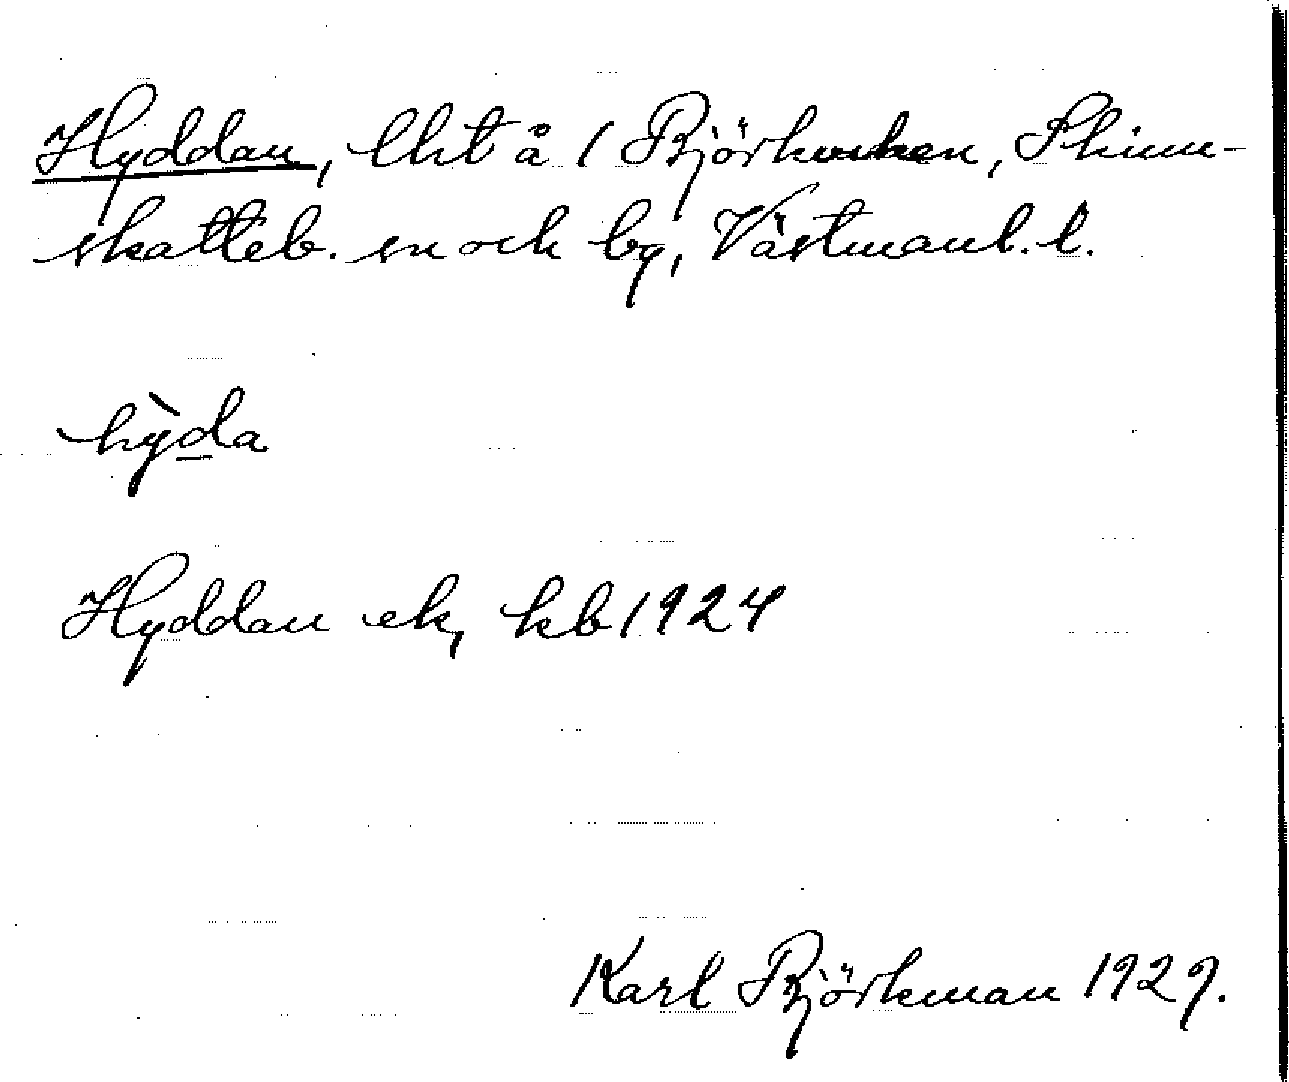 Hyddan, lht å 1 Björkverken, Skinn-
skatteb. sn och by, Västmanl. l.
hỳda
Hyddan ek, kb 1924
Karl Björkman 1929.